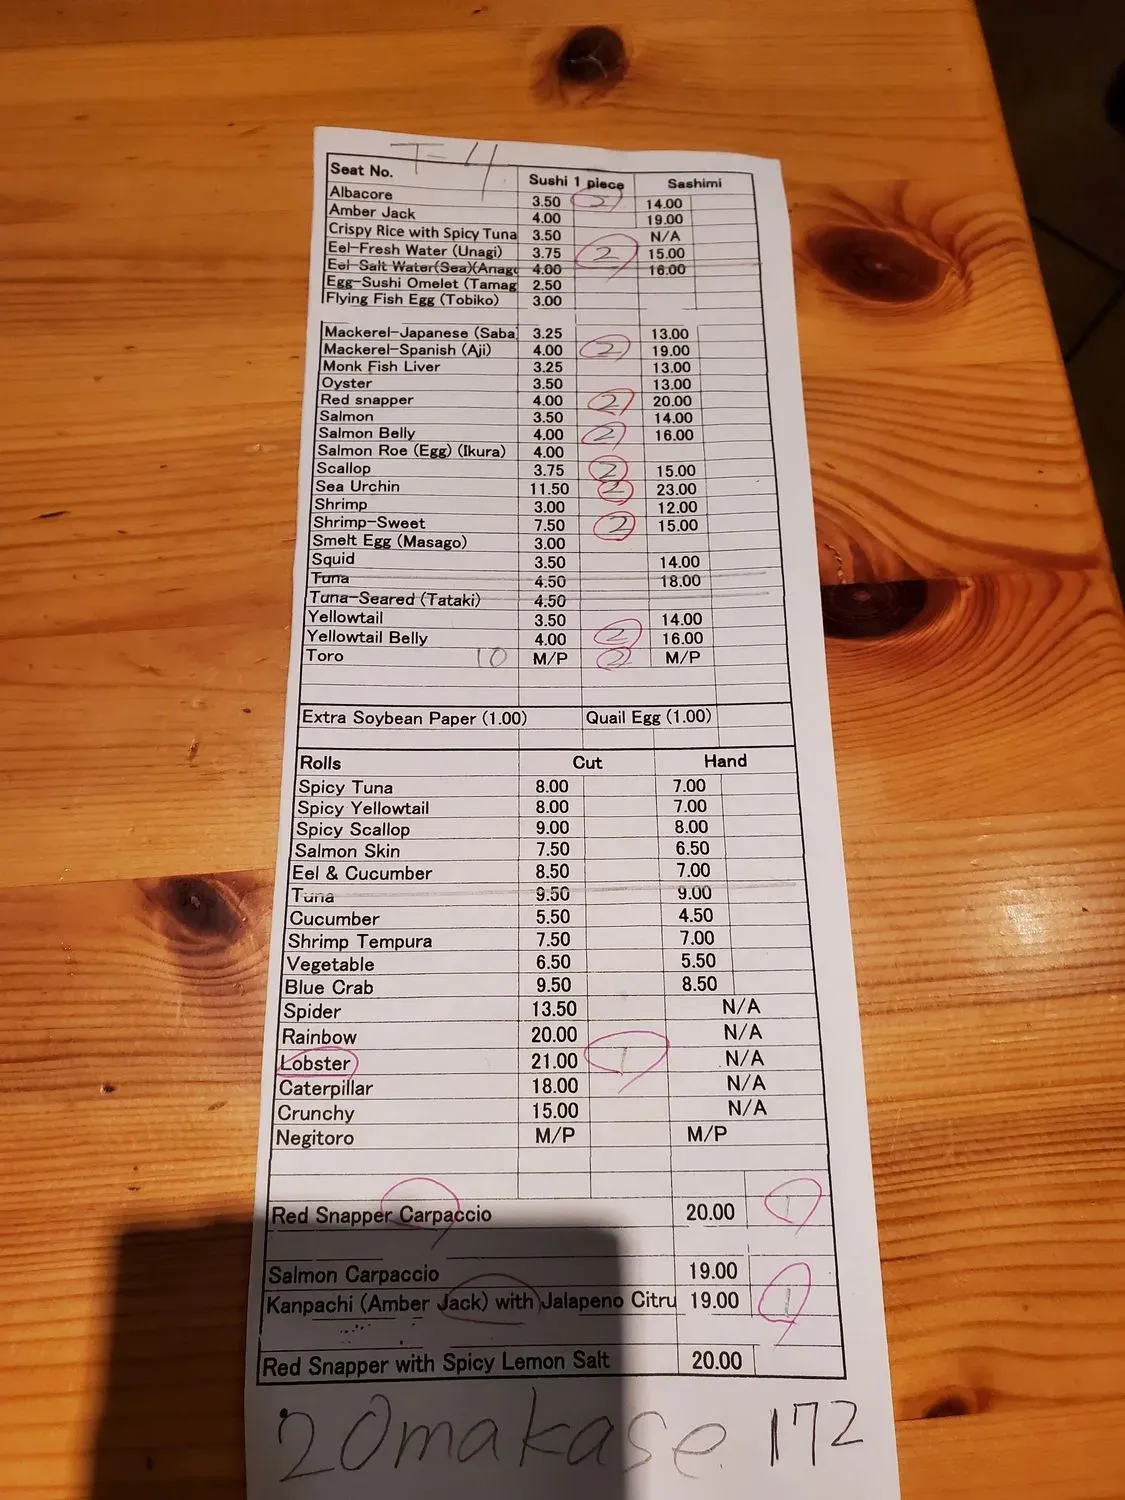 T-4
Seat No. Sushi 1 piece Sashimi
Albacore 3.50 2 14.00
Amber Jack 4.00 19.00
Crispy Rice with Spicy Tuna 3.50 N/A
Eel-Fresh Water (Unagi) 3.75 2 15.00
Eel-Salt Water(Sea)(Anago 4.00 16.00
Egg-Sushi Omelet (Tamag 2.50
Flying Fish Egg (Tobiko) 3.00
Mackerel-Japanese (Saba) 3.25 13.00
Mackerel-Spanish (Aji) 4.00 2 19.00
Monk Fish Liver 3.25 13.00
Oyster 3.50 13.00
Red snapper 4.00 2 20.00
Salmon 3.50 14.00
Salmon Belly 4.00 2 16.00
Salmon Roe (Egg) (Ikura) 4.00
Scallop 3.75 2 15.00
Sea Urchin 11.50 2 23.00
Shrimp 3.00 12.00
Shrimp-Sweet 7.50 2 15.00
Smelt Egg (Masago) 3.00
Squid 3.50 14.00
Tuna 4.50 18.00
Tuna-Seared (Tataki) 4.50
Yellowtail 3.50 14.00
Yellowtail Belly 4.00 2 16.00
Toro 10 M/P 2 M/P
Extra Soybean Paper (1.00) Quail Egg (1.00)
Rolls Cut Hand
Spicy Tuna 8.00 7.00
Spicy Yellowtail 8.00 7.00
Spicy Scallop 9.00 8.00
Salmon Skin 7.50 6.50
Eel & Cucumber 8.50 7.00
Tuna 9.50 9.00
Cucumber 5.50 4.50
Shrimp Tempura 7.50 7.00
Vegetable 6.50 5.50
Blue Crab 9.50 8.50
Spider 13.50 N/A
Rainbow 20.00 N/A
Lobster 21.00 1 N/A
Caterpillar 18.00 N/A
Crunchy 15.00 N/A
Negitoro M/P M/P
Red Snapper Carpaccio 20.00 1
Salmon Carpaccio 19.00
Kanpachi (Amber Jack) with Jalapeno Citru 19.00 1
Red Snapper with Spicy Lemon Salt 20.00
2 Omakase 172